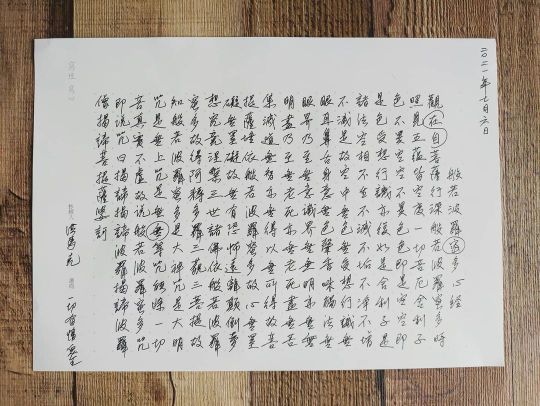 二〇二一年七月六日
般若波羅蜜多心經
觀在自菩薩行深般若波羅蜜多時
照見五蘊皆空度一切苦厄舍利子
色不異空空不異色色即是空空即
是色受想行識亦復如是舍利子是
諸法空相不生不滅不垢不淨不增
不減是故空中無色無受想行識無
眼耳鼻舌身意無色聲香味觸法無
眼界乃至無意識界無無明亦無無
明盡乃至無老死亦無老死盡無苦
集滅道無智亦無得以無所得故菩
提薩埵依般若波羅蜜多故心無罣
礙無罣礙故無有恐怖遠離顛倒夢
想究竟涅槃三世諸佛依般若波羅
蜜多故得阿耨多羅三藐三菩提故
知般若波羅蜜多是大神咒是大明
咒是無上咒是無等等咒能除一切
苦真實不虛故說般若波羅蜜多咒
即說咒曰揭諦揭諦波羅揭諦波羅
僧揭諦菩提薩婆訶
一切有情眾生